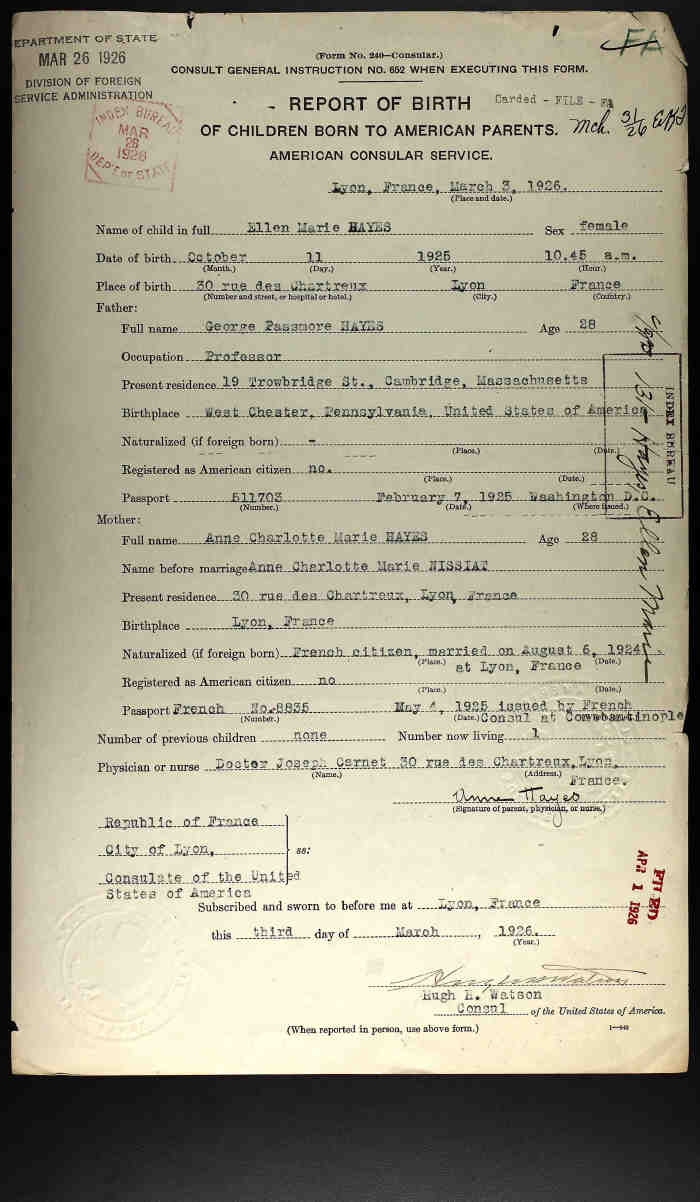 DEPARTMENT OF STATE
MAR 26 1926
DIVISION OF FOREIGN
SERVICE ADMINISTRATION
FA
(Form No. 240—Consular.)
CONSULT GENERAL INSTRUCTION NO. 652 WHEN EXECUTING THIS FORM.
INDEX BUREAU
MAR
26
1926
DEP'T. of STATE
REPORT OF BIRTH
Carded - FILE - FA
OF CHILDREN BORN TO AMERICAN PARENTS.
Mch. 31/26
AMERICAN CONSULAR SERVICE.
Lyon, France, March 3, 1926.
(Place and date.)
Name of child in full Ellen Marie HAYES Sex female
Date of birth October 11 1925 10.45 a.m.
(Month.) (Day.) (Year.) (Hour.)
Place of birth 30 rue des Chartreux Lyon France
(Number and street, or hospital or hotel.) (City.) (Country.)
Father:
Full name George Passmore HAYES Age 28
Occupation Professor
Present residence 19 Trowbridge St., Cambridge, Massachusetts
Birthplace West Chester, Pennsylvania, United States of America
Naturalized (if foreign born) -
(Place.) (Date.)
Registered as American citizen no.
(Place.) (Date.)
Passport 511703 February 7, 1925 Washington D.C.
(Number.) (Date.) (Where issued.)
INDEX BUREAU
131- Hayes, Ellen Marie
Mother:
Full name Anne Charlotte Marie HAYES Age 28
Name before marriage Anne Charlotte Marie NISSIAT
Present residence 30 rue des Chartreux, Lyon, France
Birthplace Lyon, France
Naturalized (if foreign born) French citizen, married on August 6, 1924
(Place.) at Lyon, France (Date.)
Registered as American citizen no
(Place.) (Date.)
Passport French No.8835 May 4, 1925 issued by French
(Number.) (Date.) Consul at Constantinople
Number of previous children none Number now living 1
Physician or nurse Doctor Joseph Carnet 30 rue des Chartreux, Lyon,
(Name.) (Address.) France.
Anne Hayes
(Signature of parent, physician, or nurse.)
Republic of France
City of Lyon,
ss:
Consulate of the United
States of America
FILED
APR 1 1926
Subscribed and sworn to before me at Lyon, France
this third day of March, 1926.
(Year.)
Hugh H. Watson
Hugh H. Watson
Consul of the United States of America.
(When reported in person, use above form.)
1—943